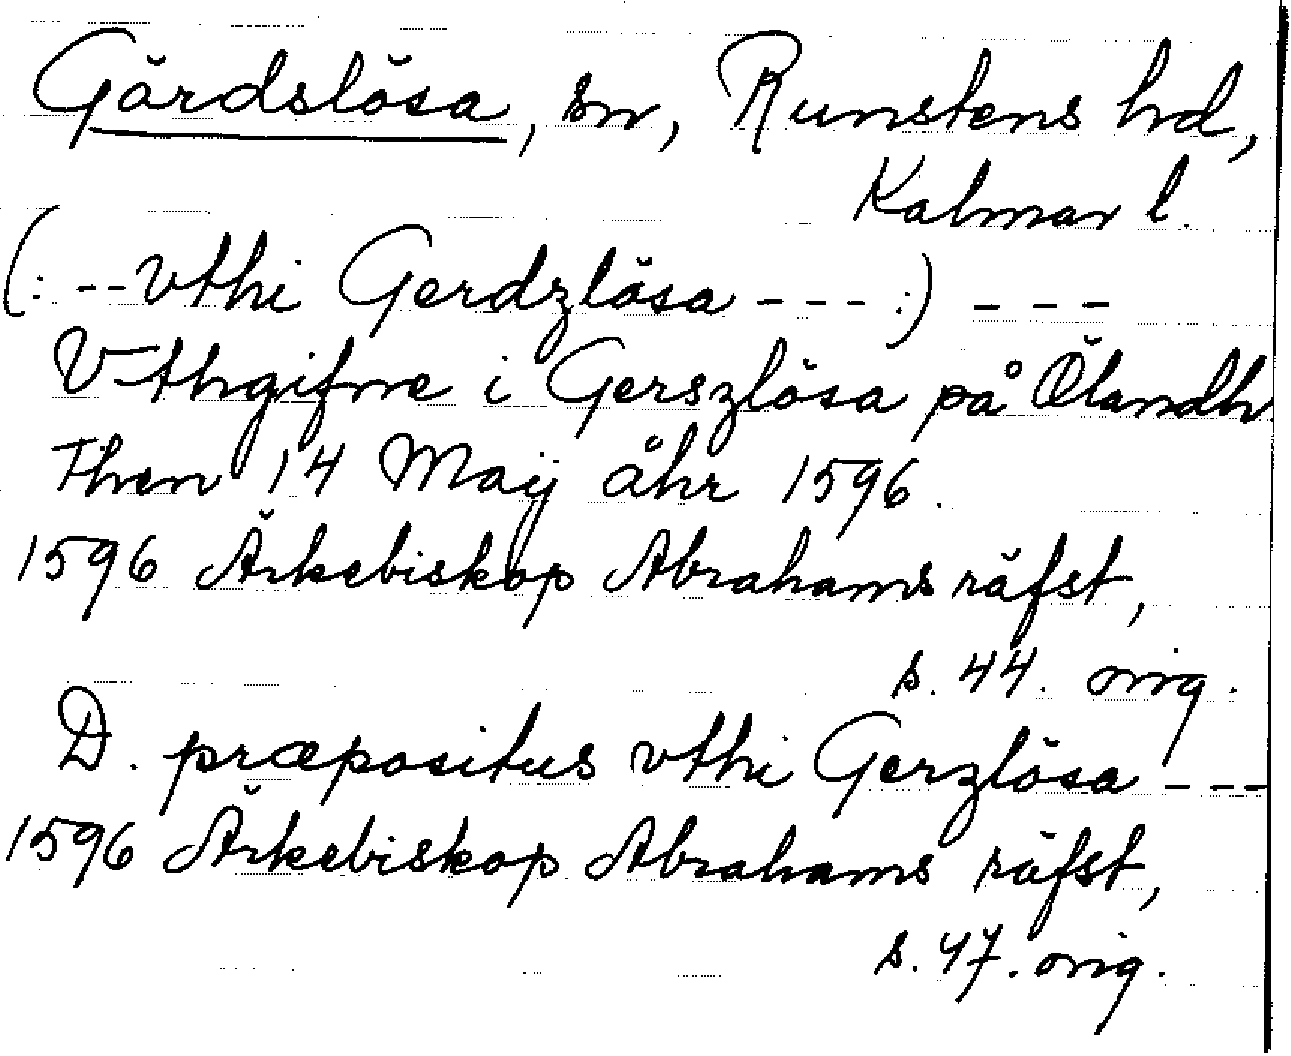 Gärdslösa, sn, Runstens hd,
Kalmar l.
(: -- vthi Gerdzlösa --- :) ---
Vthgifne i Gerszlösa på Ölandh
Then 14 Maij åhr 1596.
1596 Ärkebiskop Abrahams räfst,
s. 44. orig.
D. præpositus vthi Gerzlösa ---
1596 Ärkebiskop Abrahams räfst,
s. 47. orig.